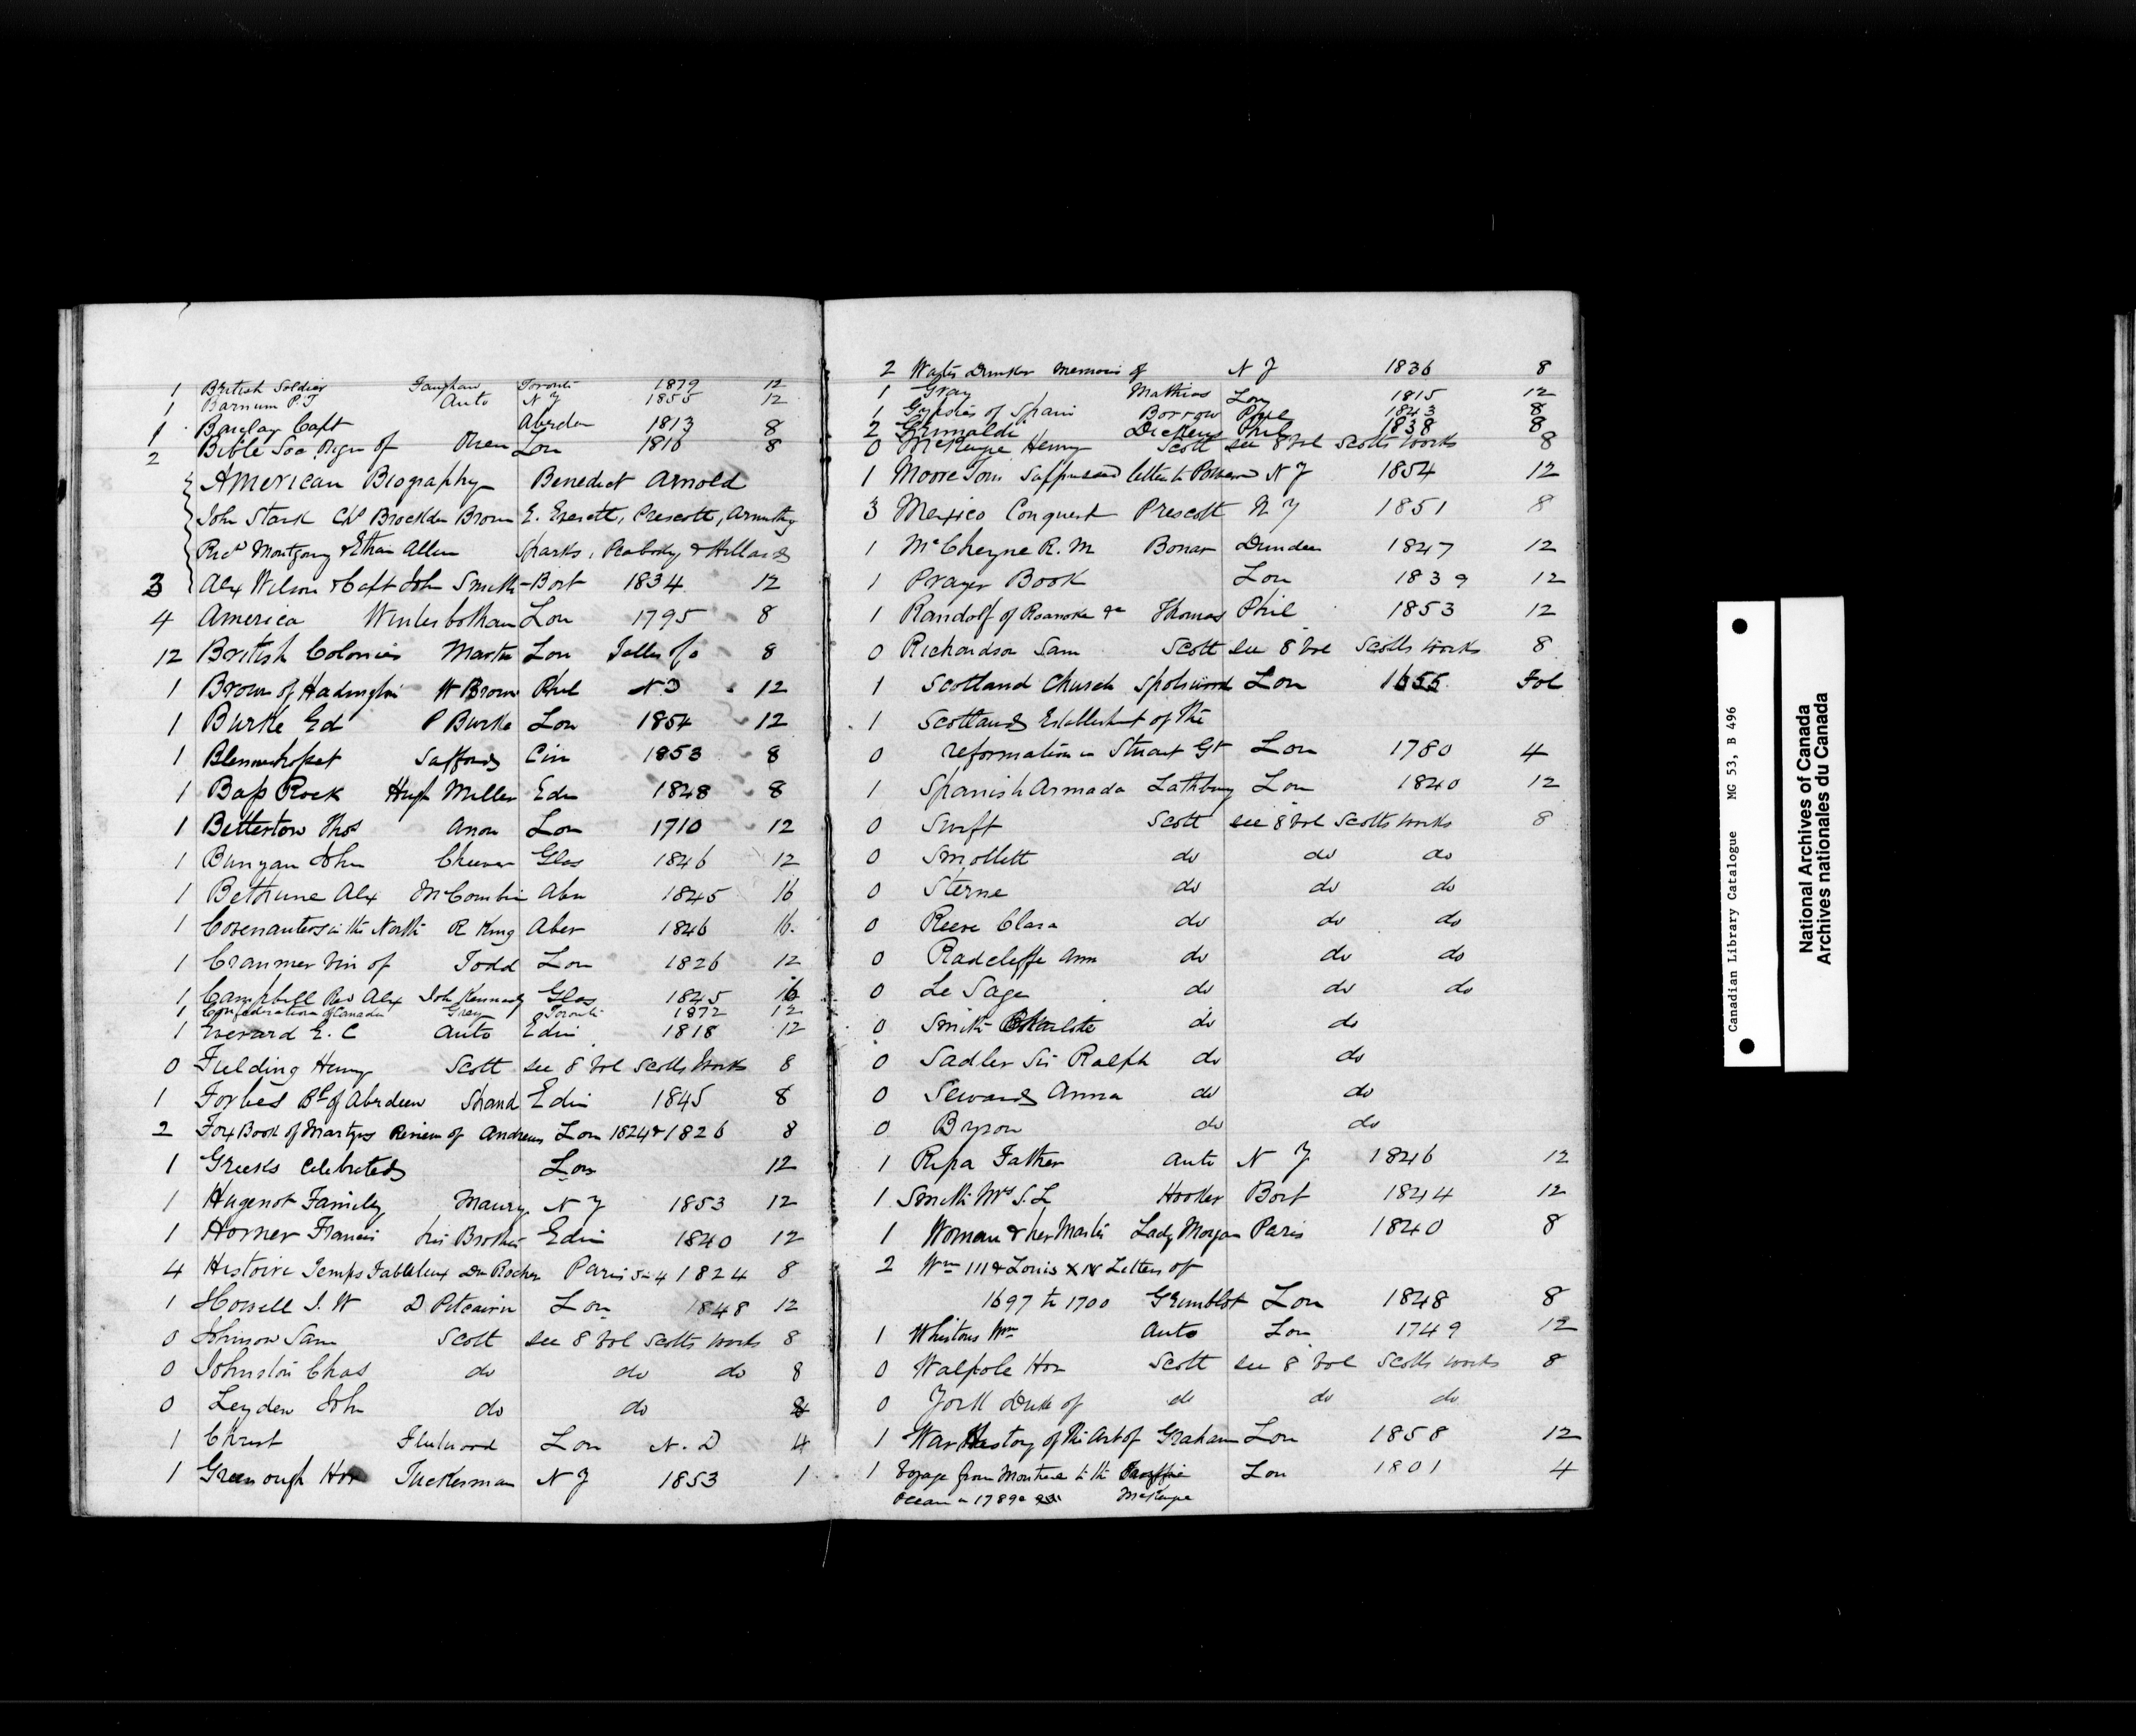 1 British Soldier Toronto 1879 12
1 Barnum P.T Auto N Y 1855 12
1 Barclay Capt Aberdeen 1813 8
2 Bible Soc Orign of Owen Lon 1816 8
American Biography Benedict Arnold
John Stark Chs Brockden Brown E. Everett, Prescott, Armstrong
Richd Montgomy & Ethan Allen Sparks, Peabody & Hillard
3 Alex Wilson & Capt John Smith - Bost 1834 12
4 America Winterbotham Lon 1795 8
12 British Colonies Martin Lon 8
1 Brown of Hadington W Brown Phil N D 12
1 Burke Ed P Burke Lon 1854 12
1 Blennerhasset Safford Cin 1853 8
1 Bass Rock Hugh Miller Edn 1848 8
1 Betterton Thos Anon Lon 1710 12
1 Bunyan John Cheever Glas 1846 12
1 Bethune Alex McCombie Aber 1845 16
1 Covenanters in the North R King Aber 1846 16
1 Cranmer Vin of Todd Lon 1826 12
1 Campbell Rev Alex John Kennedy Glas 1845 16
1 Confederation of Canada Gray Toronto 1872 12
1 Everard E. C Auto Edin 1818 12
0 Fielding Henry Scott see 8 Vol Scotts Works 8
1 Forbes Bp of Aberdeen Shand Edin 1845 8
2 Fox Book of Martyrs Review of Andrews Lon 1824 & 1826 8
1 Greeks Celebrated Lon 12
1 Hugenot Family Maury N Y 1853 12
1 Horner Francis his Brother Edin 1840 12
4 Histoire Temps Fabuleux Du Rocher Paris 1824 8
1 Howell I. W D Pitcairn Lon 1848 12
0 Johnson Sam Scott see 8 Vol Scotts Works 8
0 Johnston Chas do do do 8
0 Leyden John do do 8
1 Christ Fleetwood Lon N. D 4
1 Greenough Hor Tuckerman N Y 1853 1
2 Memoirs of N Y 1836 8
1 Gray Mathias Lon 1815 12
1 Gypsies of Spain Borrow Phil 1843 8
2 Grimaldi Dickens Phil 1838 8
0 McKenzie Henry Scott see 8 Vol Scotts Works 8
1 Moore Tom Suppressed letters to Power N Y 1854 12
3 Mexico Conquest Prescott N Y 1851 8
1 McCheyne R. M Bonar Dundee 1847 12
1 Prayer Book Lon 1839 12
1 Randolf of Roanoke &c Thomas Phil 1853 12
0 Richardson Sam Scott see 8 Vol Scotts Works 8
1 Scotland Church Spotswood Lon 1655 Fol
1 Scotland Establishment of the
0 reformation in Stuart Gt Lon 1780 4
1 Spanish Armada Lathbury Lon 1840 12
0 Swift Scott see 8 Vol Scotts Works 8
0 Smollett do do do
0 Sterne do do do
0 Reeve Clara do do do
0 Radcliffe Ann do do do
0 Le Sage do do do
0 Smith Charlotte do do
0 Sadler Sir Ralph do do
0 Seward Anna do do
0 Byron do do
1 Ripa Father Auto N Y 1846 12
1 Smith Mrs S. L Hooker Bost 1844 12
1 Woman & her Master Lady Morgan Paris 1840 8
2 Wm III & Louis XIV Letters of
1697 to 1700 Grimblot Lon 1848 8
1 Whistons Wm Auto Lon 1749 12
0 Walpole Hor Scott see 8 Vol Scotts Works 8
0 York Duke of do do do
1 War History of the Art of Graham Lon 1858 12
1 Voyage from Montreal to the Pacific Lon 1801 4
Ocean in 1789 & McKenzie
Canadian Library Catalogue MG 53, B 496
National Archives of Canada
Archives nationales du Canada